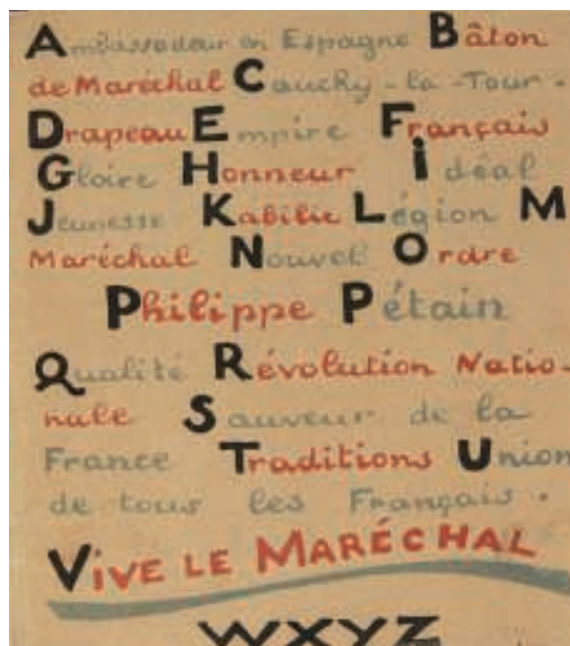 Ambassadeur en Espagne Bâton
de Maréchal Cauchy-la-Tour.
Drapeau Empire Français
Gloire Honneur idéal
Jeunesse Kabilie Légion M
Maréchal Nouvel Ordre
Philippe Pétain
Qualité Révolution Natio-
nale Sauveur de la
France Traditions Union
de tous les Français.
VIVE LE MARÉCHAL
WXYZ